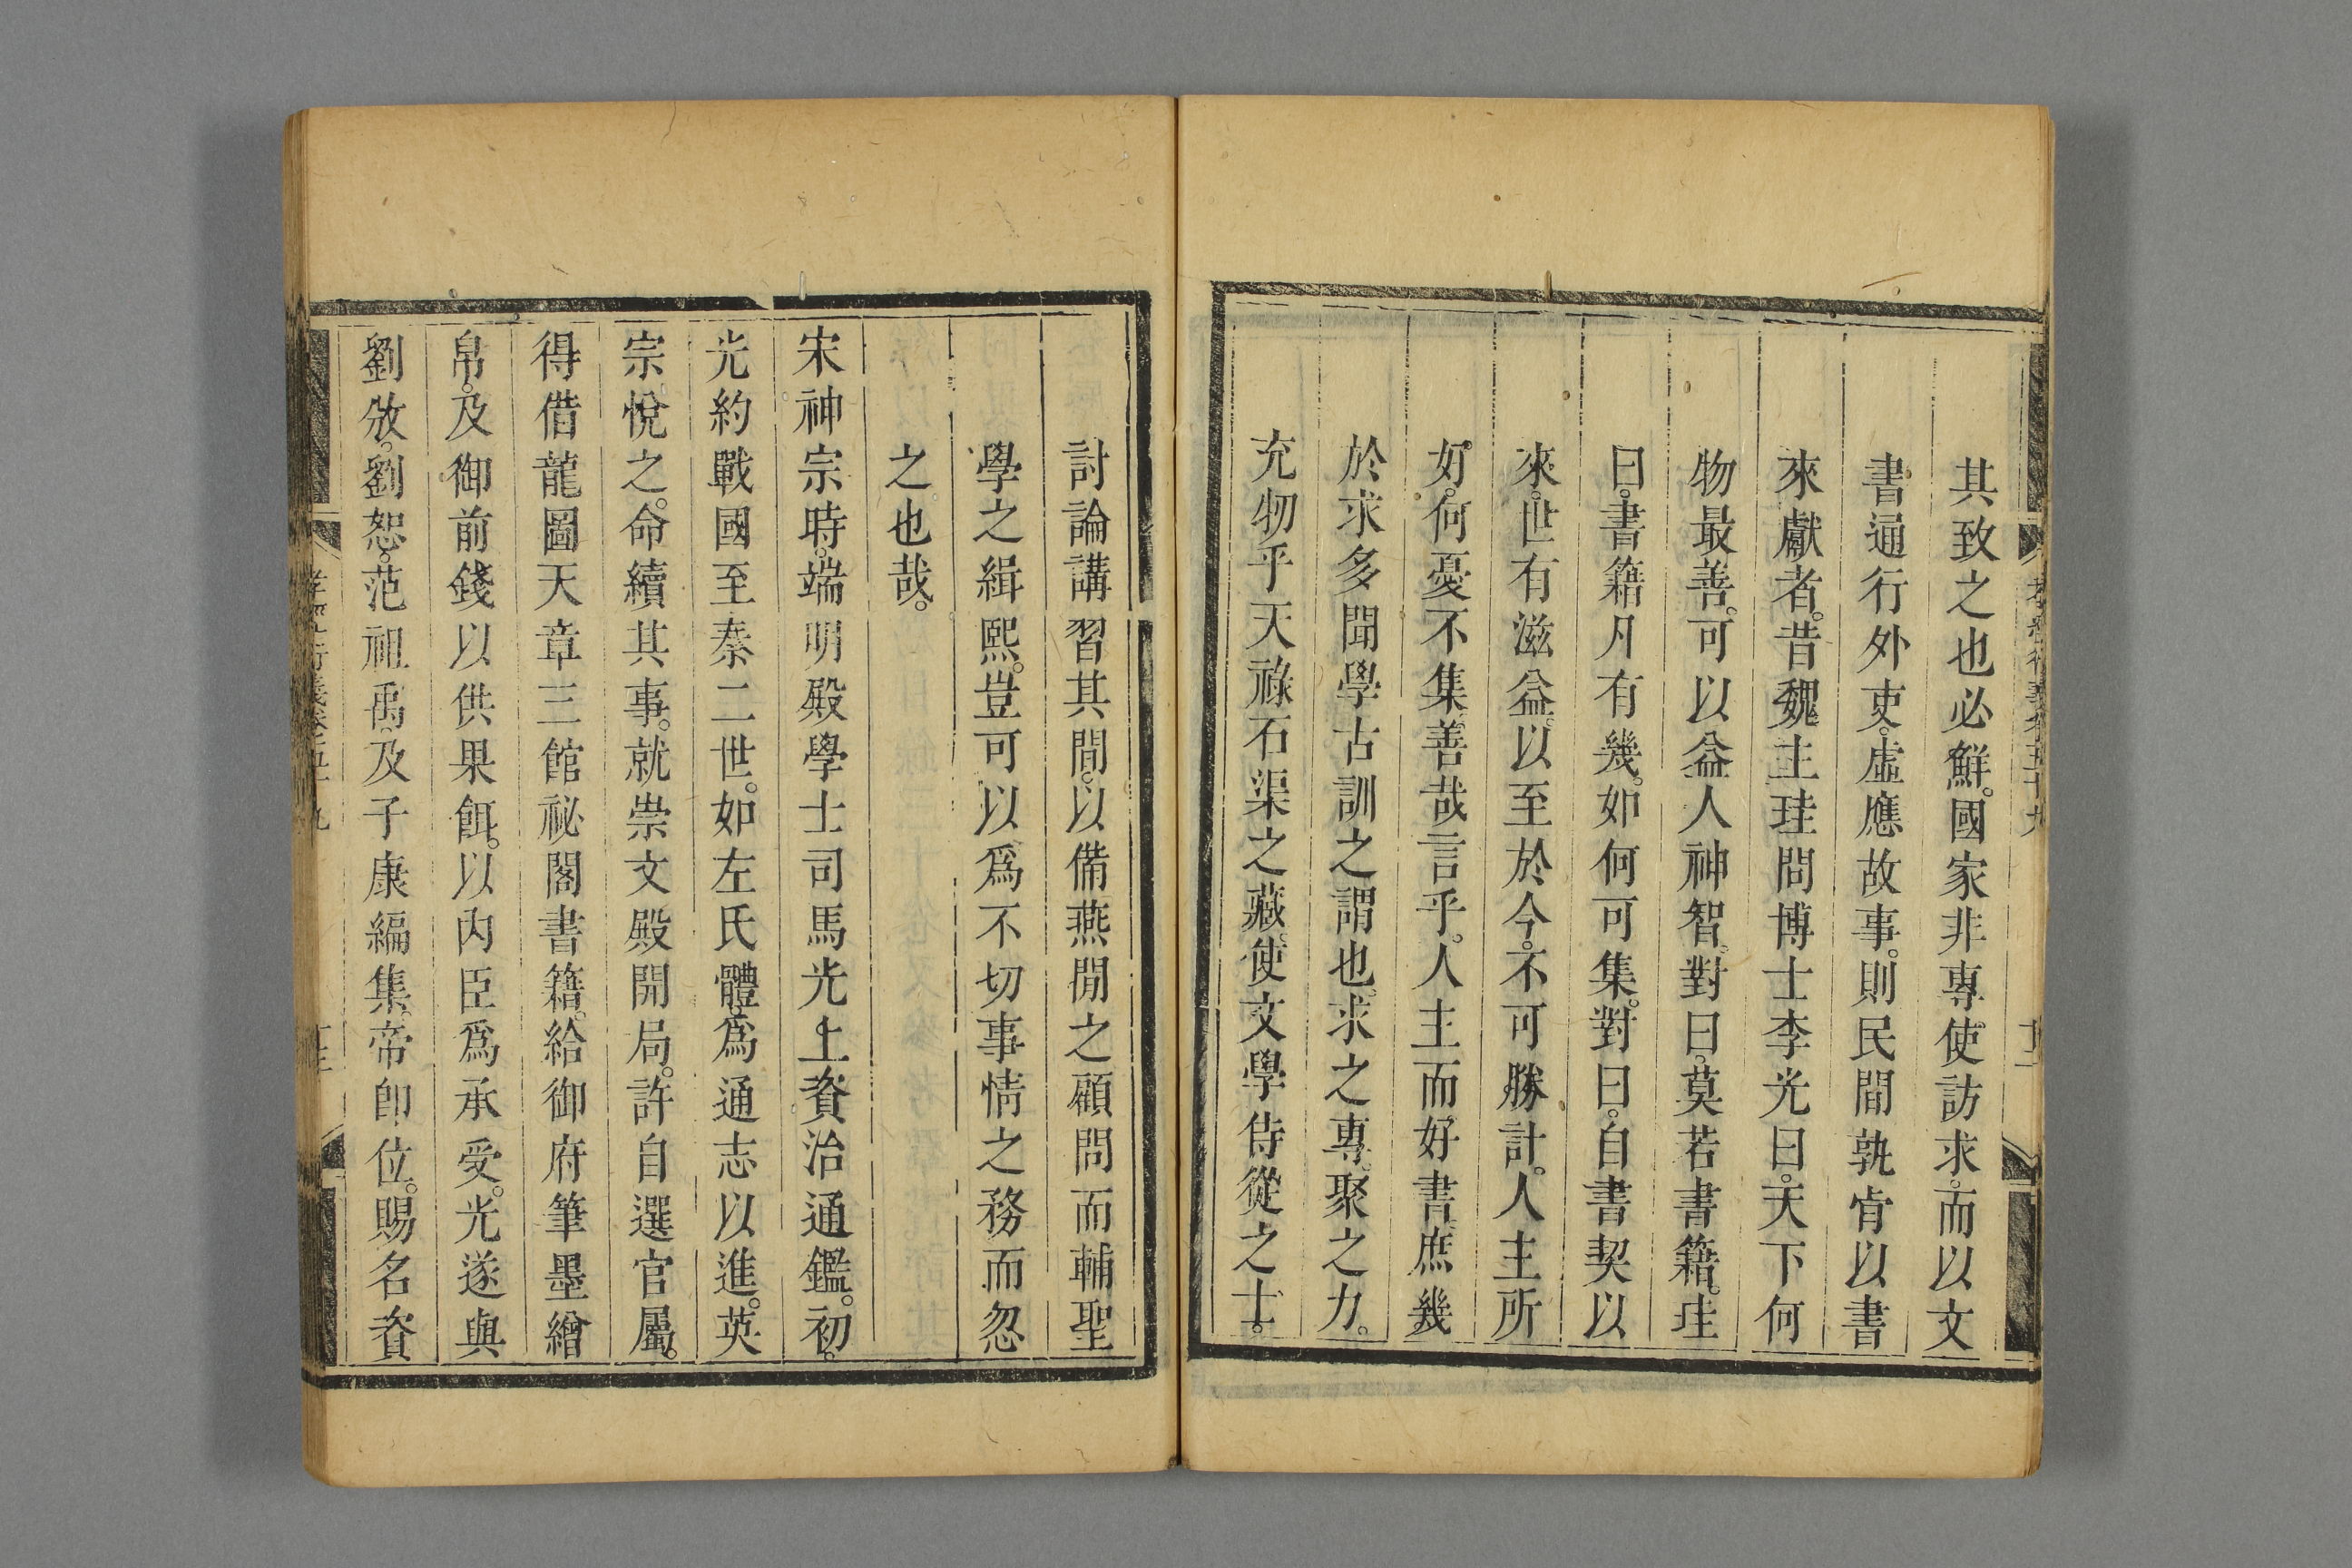 其致之也必鮮。國家非專使訪求。而以文
書通行外吏。虛應故事。則民間孰肯以書
來獻者。昔魏主珪問博士李光曰。天下何
物最善。可以益人神智。對曰。莫若書籍。珪
曰。書籍凡有幾。如何可集。對曰。自書契以
來。世有滋益。以至於今。不可勝計。人主所
好。何憂不集。善哉言乎。人主而好書。庶幾
於求多聞學古訓之謂也。求之專。聚之力。
充牣乎天祿石渠之藏。使文學侍從之士。
討論講習其間。以備燕閒之顧問。而輔聖
學之緝熙。豈可以爲不切事情之務而忽
之也哉。
宋神宗時。端明殿學士司馬光上資治通鑑。初。
光約戰國至秦二世。如左氏體。爲通志以進。英
宗悅之。命續其事。就崇文殿開局。許自選官屬。
得借龍圖天章三館祕閣書籍。給御府筆墨繒
帛。及御前錢以供果餌。以內臣爲承受。光遂與
劉攽。劉恕。范祖禹。及子康編集。帝卽位。賜名資
孝經衍義卷五十九